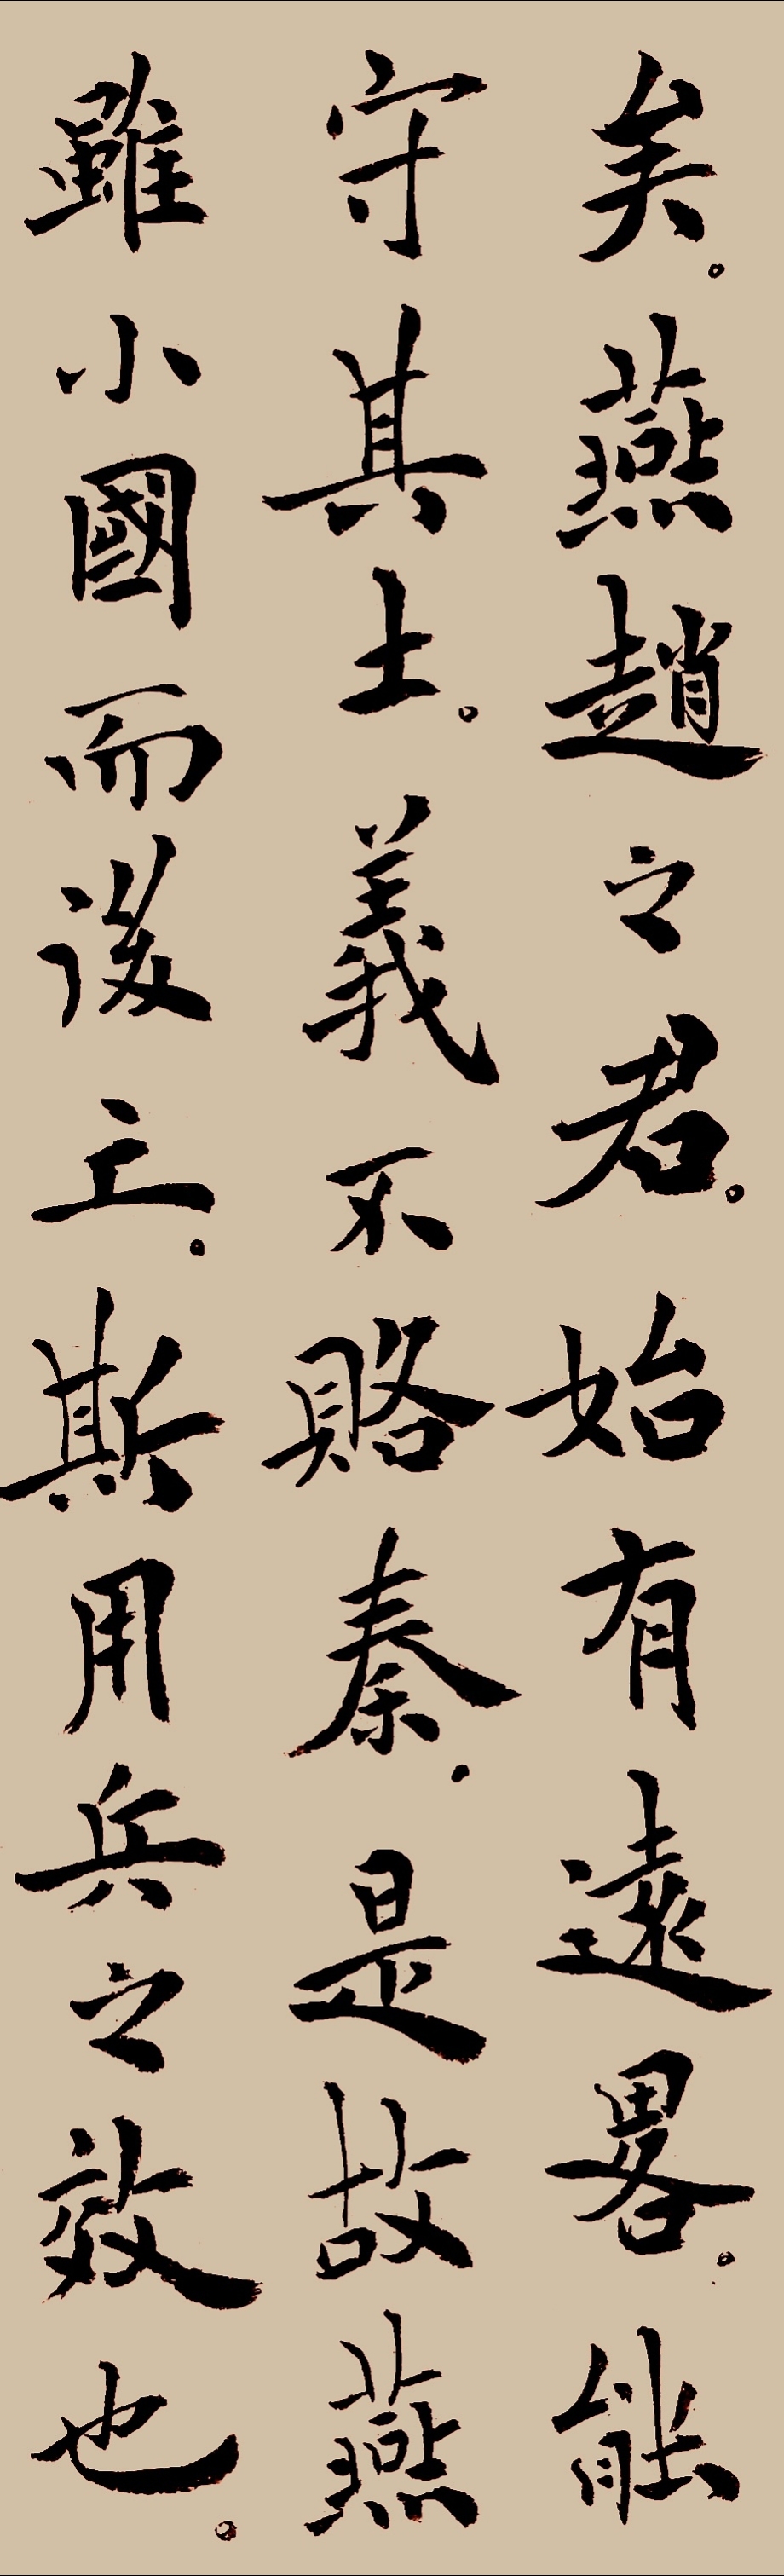 矣。燕趙之君。始有遠畧。能
守其土。義不賂秦。是故燕
雖小國而後亡。斯用兵之效也。